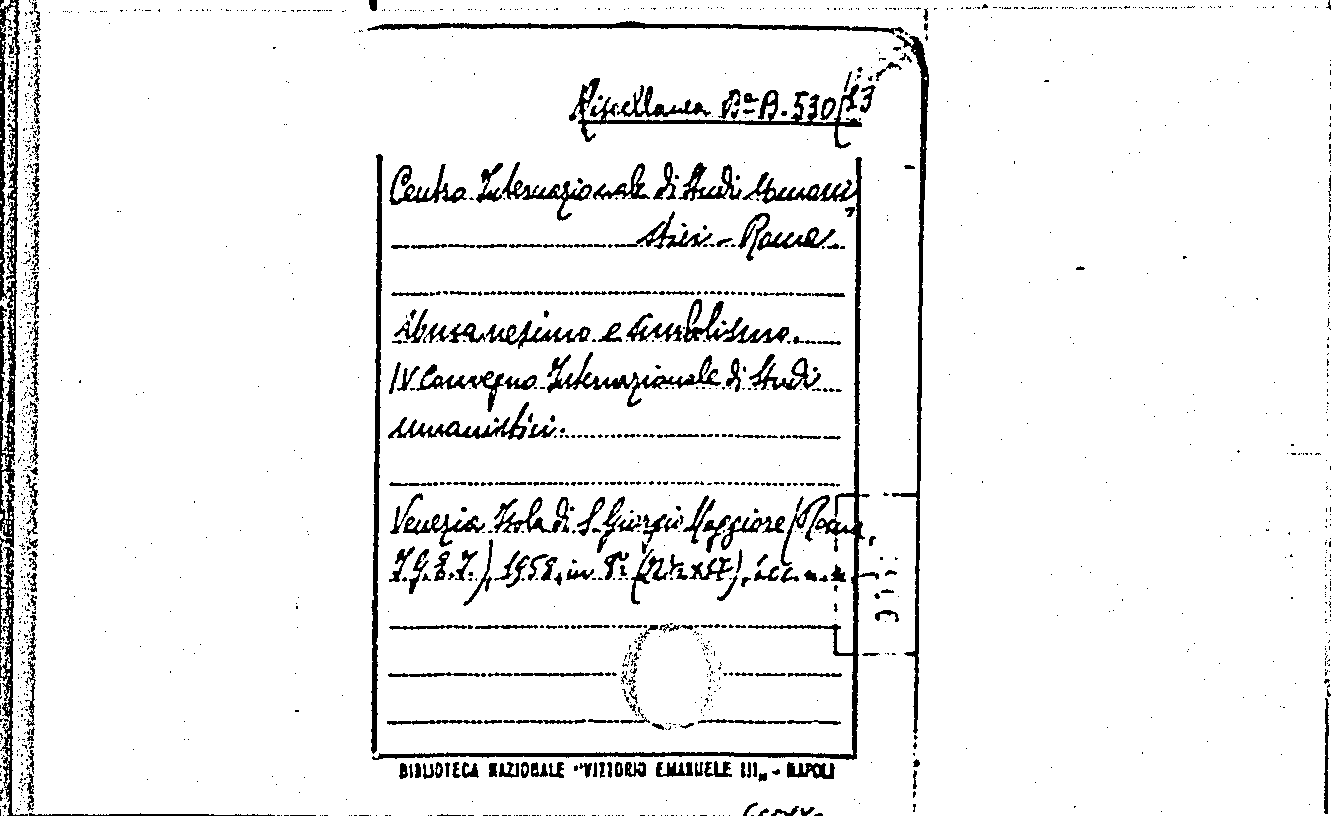 Miscellanea Bª B. 530/23
Centro Internazionale di Studi Umani-
stici - Roma
Umanesimo e simbolismo.
IV Convegno Internazionale di Studi
umanistici.
Venezia Isola di S. Giorgio Maggiore (Roma,
I.G.E.I.), 1958, in 8º
BIBLIOTECA NAZIONALE "VITTORIO EMANUELE III„ - NAPOLI